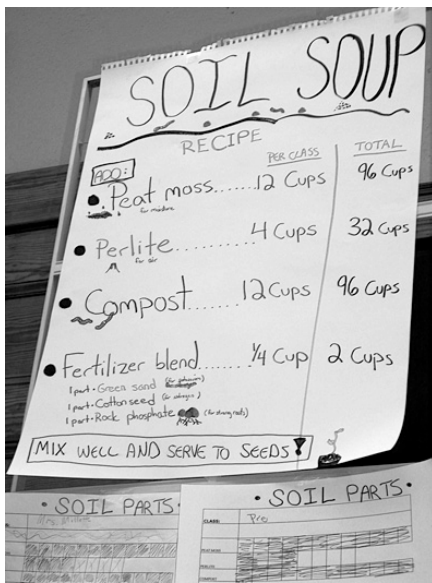 SOIL SOUP
RECIPE
PER CLASS TOTAL
ADD:
• Peat moss......12 Cups 96 Cups
for moisture
• Perlite..........4 Cups 32 Cups
for air
• Compost......12 Cups 96 Cups
• Fertilizer blend.....1/4 Cup 2 Cups
1 part • Green sand (for potassium)
1 part • Cottonseed (for nitrogen)
1 part • Rock phosphate (for strong roots)
MIX WELL AND SERVE TO SEEDS!
• SOIL PARTS •
• SOIL PARTS •
CLASS: Pre
PEAT MOSS
PERLITE
COMPOST